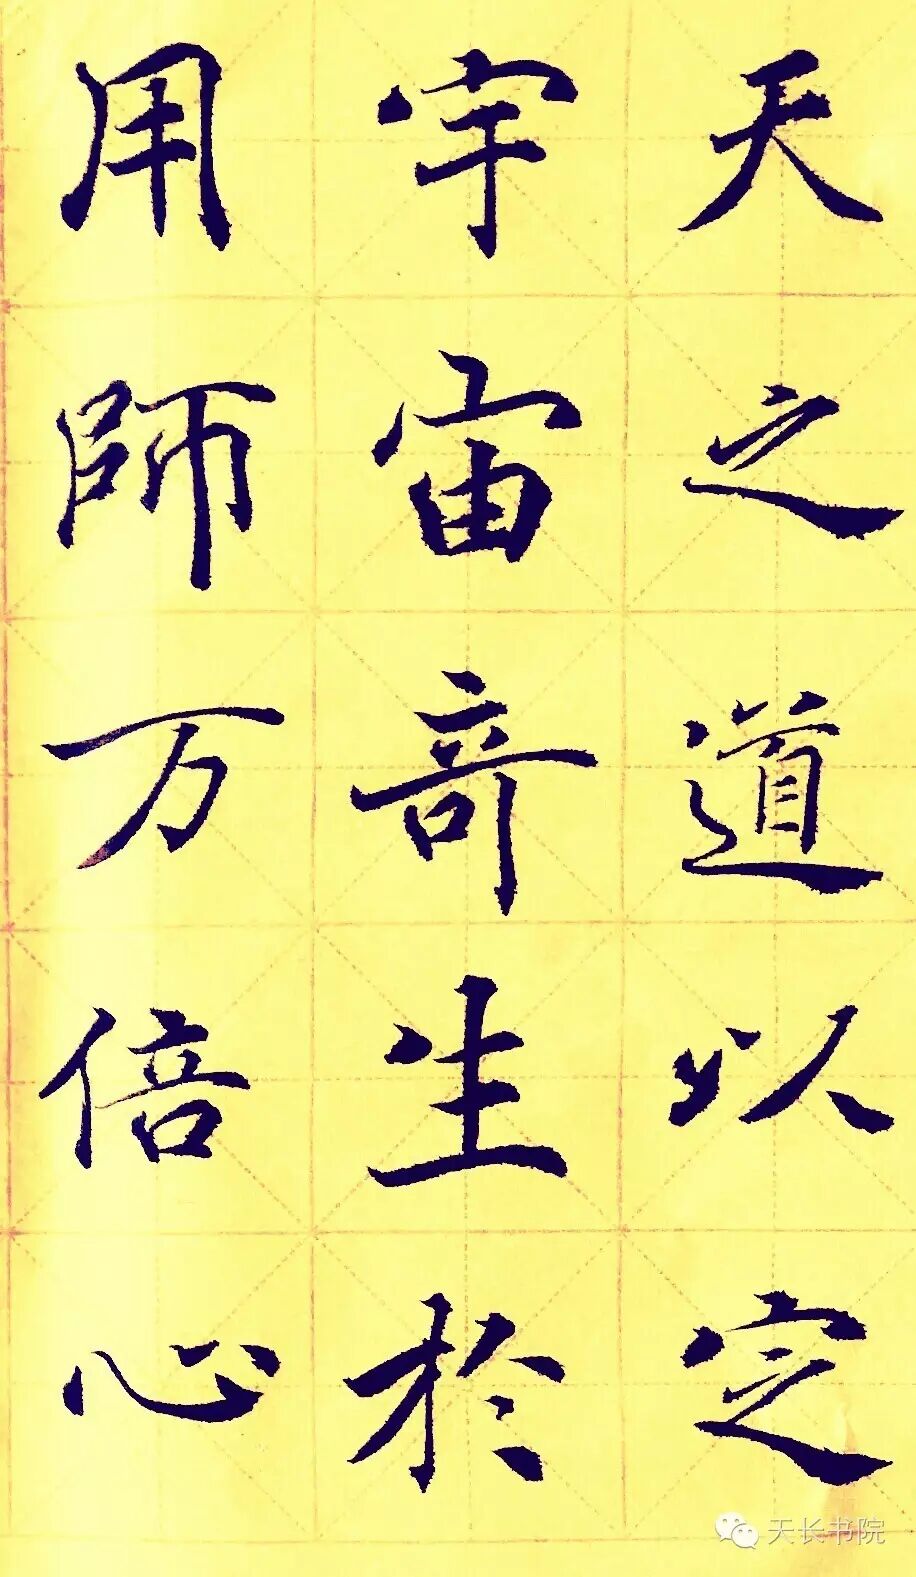 天之道以定
宇宙奇生於
用師万倍心
天长书院